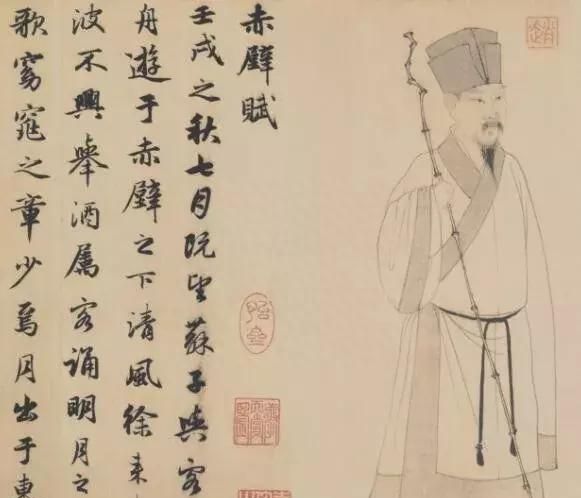 赤壁賦
壬戌之秋七月既望蘇子與客
舟遊于赤壁之下清風徐来
波不興舉酒屬客誦明月之
歌窈窕之章少焉月出于東